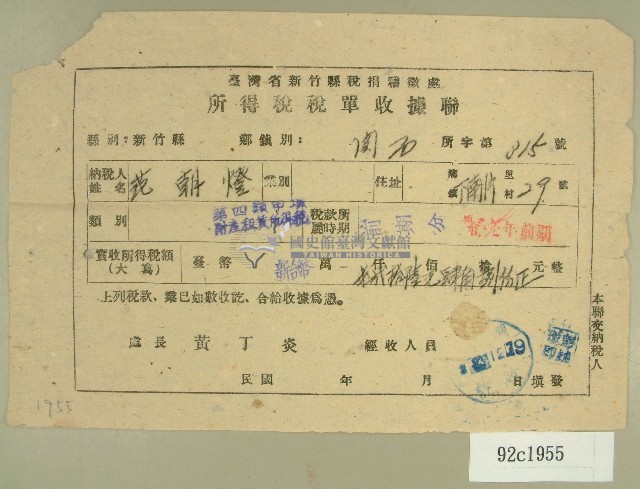 臺灣省新竹縣稅捐稽徵處
所得稅稅單收據聯
縣別:新竹縣 鄉鎮別: 關西 所字第 815 號
納稅人姓名 范朝燈 業別 住址 鄉鎮 里村 29 號
類別 第四類甲項 財產租賃所得稅 稅款所屬時期 前期
國史館臺灣文獻館
TAIWAN HISTORICA
實收所得稅額(大寫) 臺幣 新幣 萬 仟 佰 拾 元整
上列稅款、業已如數收訖、合給收據為憑。
處長 黃丁炎 經收人員
12 19
民國 年 月 日填發
本聯交納稅人
1955
92c1955